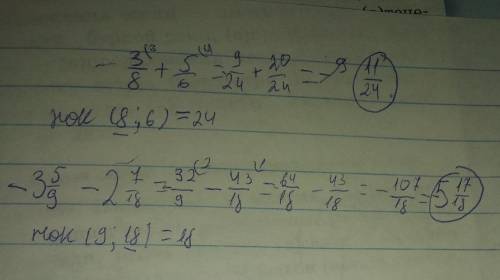 - 3/8 (3 + 5/6 (4 = 9/24 + 20/24 = 11/24
нок (8; 6) = 24
- 3 5/9 - 2 7/18 = 32/9 (2 - 43/18 (1 = 64/18 - 43/18 = - 107/18 = 5 17/18
нок (9; 18) = 18